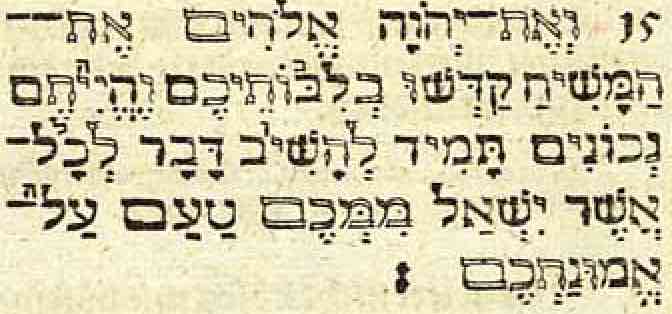 15 וְאֶת־יְהֹוָה אֱלֹהִים אֶת־
הַמָּשִׁיחַ קַדְּשׁוּ בְּלִבּוֹתֵיכֶם וֶהֱיִיתֶם
נְכוֹנִים תָּמִיד לְהָשִׁיב דָּבָר לְכָל־
אֲשֶׁר יִשְׁאַל מִמְּכֶם טַעַם עַל־
אֱמוּנַתְכֶם :